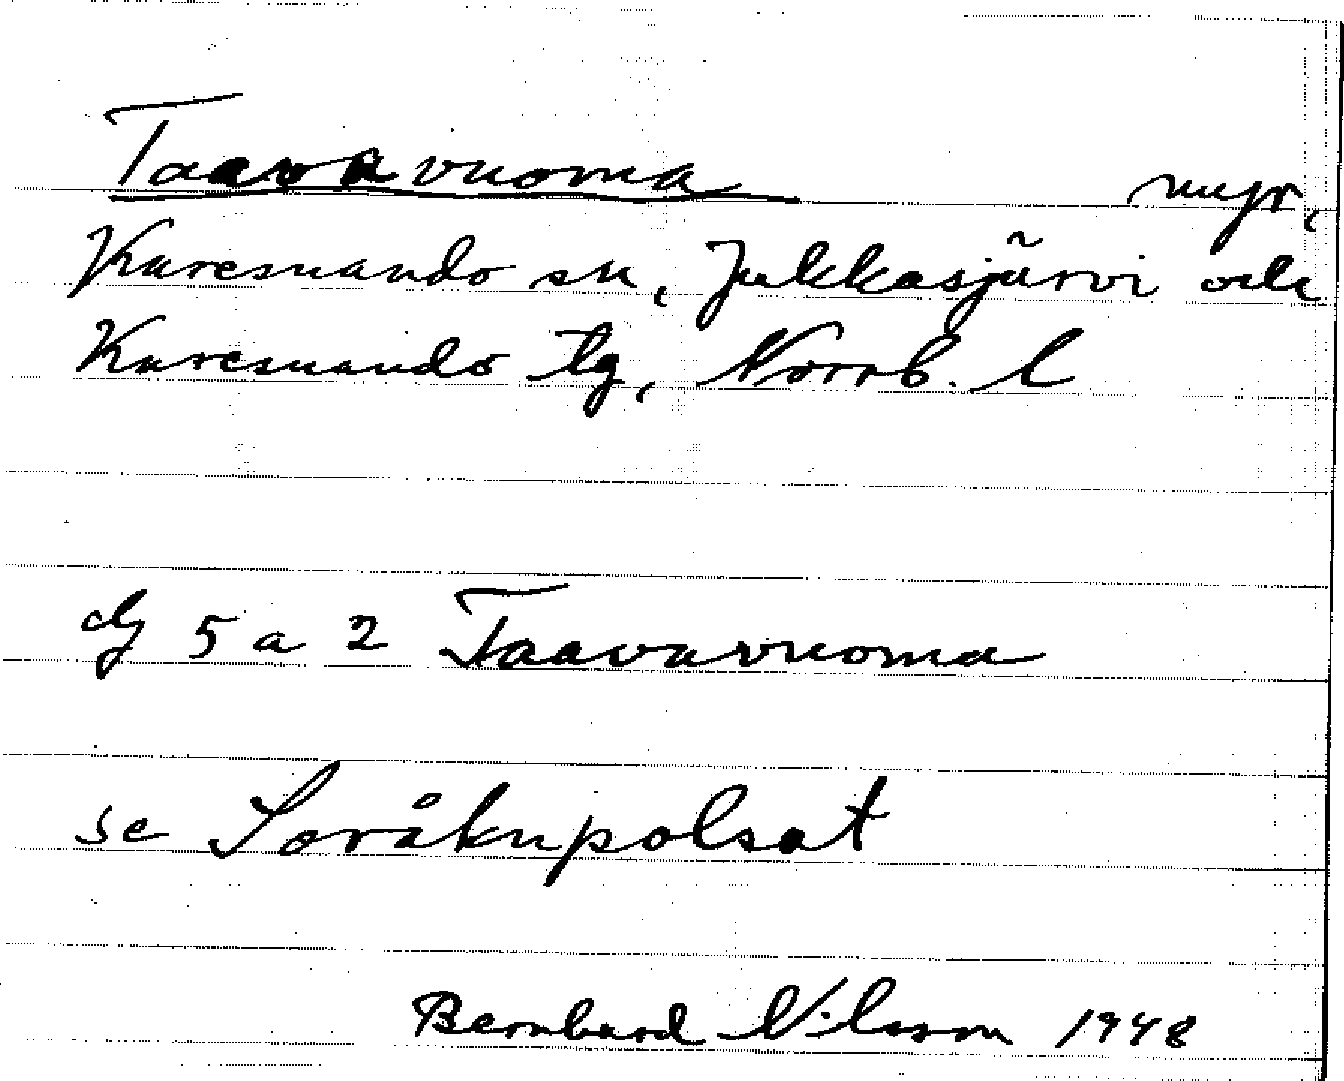 Taavavuoma myr,
Karesuando sn, Jukkasjärvi och
Karesuando tg, Norrb. l
dg 5 a 2 Taavavuoma
se Soråkupolsat
Bernhard Nilsson 1948